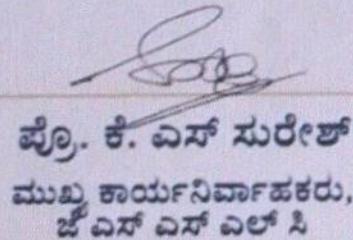 ಪ್ರೊ. ಕೆ. ಎಸ್ ಸುರೇಶ್
ಮುಖ್ಯ ಕಾರ್ಯನಿರ್ವಾಹಕರು,
ಜೆ ಎಸ್ ಎಸ್ ಎಲ್ ಸಿ